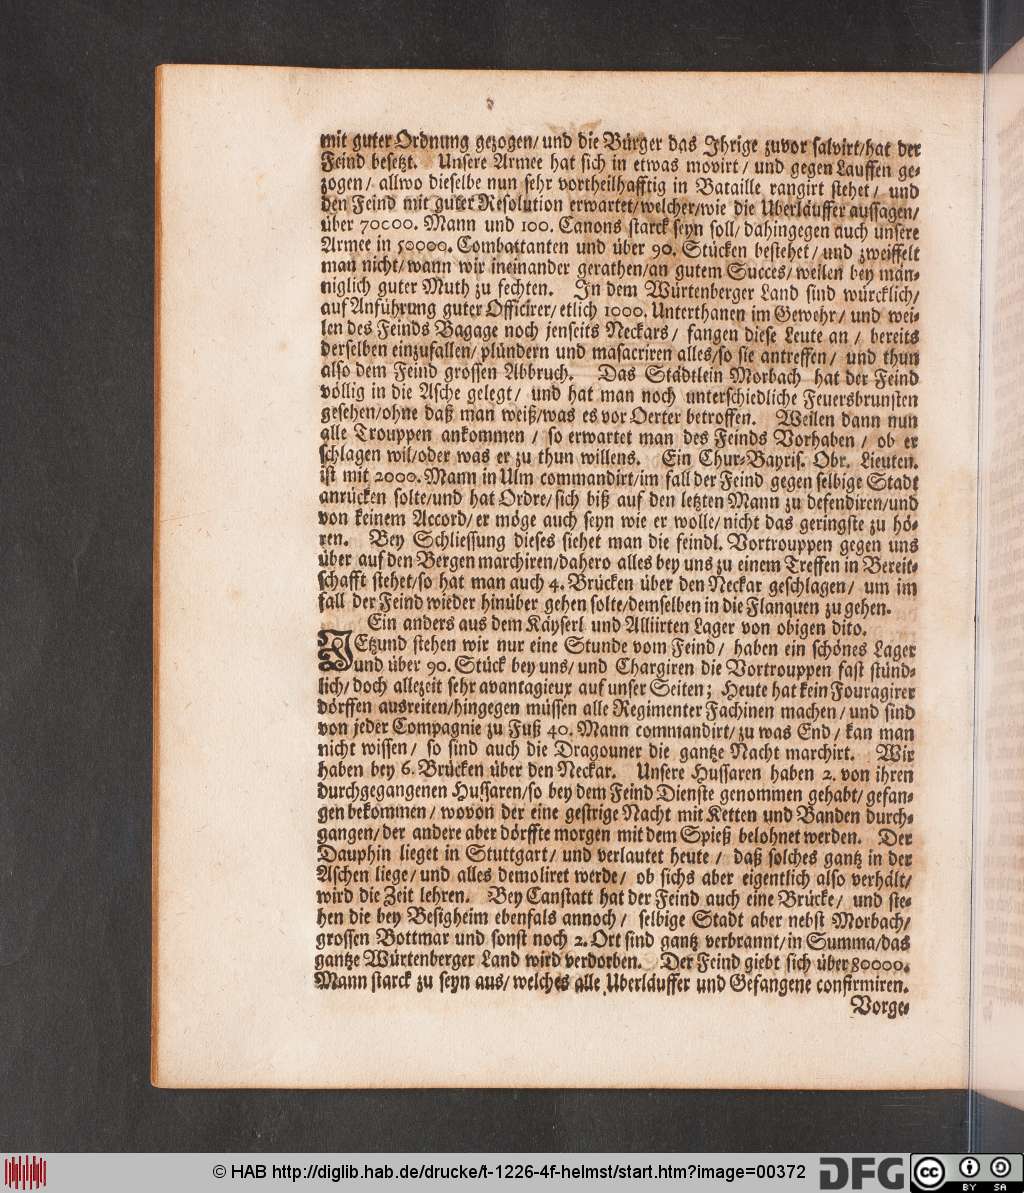 mit guter Ordnung gezogen/ und die Bürger das Ihrige zuvor salvirt/hat der
Feind besetzt. Unsere Armee hat sich in etwas movirt/ und gegen Lauffen ge-
zogen/ allwo dieselbe nun sehr vortheilhafftig in Bataille rangirt stehet/ und
den Feind mit guter Resolution erwartet/welcher/wie die Uberläuffer aussagen/
über 70000. Mann und 100. Canons starck seyn soll/ dahingegen auch unsere
Armee in 50000. Combattanten und über 90. Stücken bestehet/ und zweiffelt
man nicht/wann wir ineinander gerathen/an gutem Succes/weilen bey män-
niglich guter Muth zu fechten. In dem Würtenberger Land sind würcklich/
auf Anführung guter Officirer/etlich 1000. Unterthanen im Gewehr/ und wei-
len des Feinds Bagage noch jenseits Neckars/ fangen diese Leute an/ bereits
derselben einzufallen/ plündern und masacriren alles/so sie antreffen/ und thun
also dem Feind grossen Abbruch. Das Städtlein Morbach hat der Feind
völlig in die Asche gelegt/ und hat man noch unterschiedliche Feuersbrunsten
gesehen/ohne daß man weiß/was es vor Oerter betroffen. Weilen dann nun
alle Trouppen ankommen/ so erwartet man des Feinds Vorhaben/ ob er
schlagen wil/oder was er zu thun willens. Ein Chur-Bayris. Obr. Lieuten.
ist mit 2000. Mann in Ulm commandirt/im fall der Feind gegen selbige Stadt
anrücken solte/und hat Ordre/sich biß auf den letzten Mann zu defendiren/und
von keinem Accord/er möge auch seyn wie er wolle/nicht das geringste zu hö-
ren. Bey Schliessung dieses siehet man die feindl. Vortrouppen gegen uns
über auf den Bergen marchiren/dahero alles bey uns zu einem Treffen in Bereit-
schafft stehet/so hat man auch 4. Brücken über den Neckar geschlagen/ um im
fall der Feind wieder hinüber gehen solte/demselben in die Flanquen zu gehen.
Ein anders aus dem Käyserl und Alliirten Lager von obigen dito.
JEtzund stehen wir nur eine Stunde vom Feind/ haben ein schönes Lager
und über 90. Stück bey uns/ und Chargiren die Vortrouppen fast stünd-
lich/ doch allezeit sehr avantagieux auf unser Seiten; Heute hat kein Fouragirer
dörffen ausreiten/hingegen müssen alle Regimenter Fachinen machen/ und sind
von jeder Compagnie zu Fuß 40. Mann commandirt/ zu was End/ kan man
nicht wissen/ so sind auch die Dragouner die gantze Nacht marchirt. Wir
haben bey 6. Brücken über den Neckar. Unsere Hussaren haben 2. von ihren
durchgegangenen Hussaren/so bey dem Feind Dienste genommen gehabt/ gefan-
gen bekommen/ wovon der eine gestrige Nacht mit Ketten und Banden durch-
gangen/der andere aber dörffte morgen mit dem Spieß belohnet werden. Der
Dauphin lieget in Stuttgart/ und verlautet heute/ daß solches gantz in der
Aschen liege/ und alles demoliret werde/ ob sichs aber eigentlich also verhält/
wird die Zeit lehren. Bey Canstatt hat der Feind auch eine Brücke/ und ste-
hen die bey Besigheim ebenfals annoch/ selbige Stadt aber nebst Morbach/
grossen Bottmar und sonst noch 2. Ort sind gantz verbrannt/in Summa/das
gantze Würtenberger Land wird verdorben. Der Feind giebt sich über 80000.
Mann starck zu seyn aus/ welches alle Uberläuffer und Gefangene confirmiren.
Vorge-
© HAB http://diglib.hab.de/drucke/t-1226-4f-helmst/start.htm?image=00372
DFG
cc BY SA